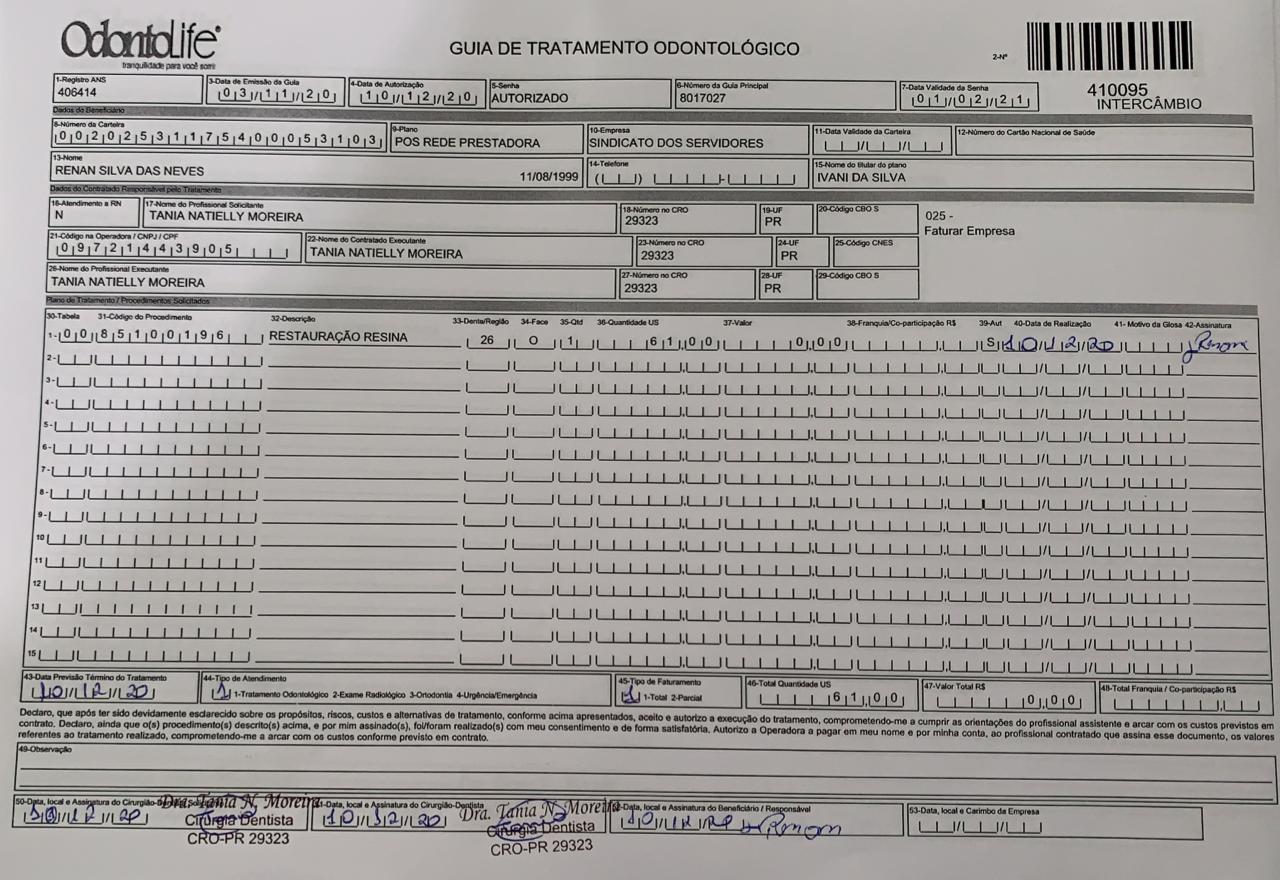 OdontoLife
tranquilidade para você sorrir
GUIA DE TRATAMENTO ODONTOLÓGICO
2-Nº
410095
INTERCÂMBIO
1-Registro ANS
406414
3-Data de Emissão da Guia
03/11/20
4-Data de Autorização
10/12/20
5-Senha
AUTORIZADO
6-Número da Guia Principal
8017027
7-Data Validade da Senha
01/02/21
Dados do Beneficiário
8-Número da Carteira
00202531175400053103
9-Plano
POS REDE PRESTADORA
10-Empresa
SINDICATO DOS SERVIDORES
11-Data Validade da Carteira
12-Número do Cartão Nacional de Saúde
13-Nome
RENAN SILVA DAS NEVES 11/08/1999
14-Telefone
15-Nome do titular do plano
IVANI DA SILVA
Dados do Contratado Responsável pelo Tratamento
16-Atendimento a RN
N
17-Nome do Profissional Solicitante
TANIA NATIELLY MOREIRA
18-Número no CRO
29323
19-UF
PR
20-Código CBO S
025 -
Faturar Empresa
21-Código na Operadora / CNPJ / CPF
09721443905
22-Nome do Contratado Executante
TANIA NATIELLY MOREIRA
23-Número no CRO
29323
24-UF
PR
25-Código CNES
26-Nome do Profissional Executante
TANIA NATIELLY MOREIRA
27-Número no CRO
29323
28-UF
PR
29-Código CBO S
Plano de Tratamento / Procedimentos Solicitados
30-Tabela 31-Código do Procedimento 32-Descrição 33-Dente/Região 34-Face 35-Qtd 36-Quantidade US 37-Valor 38-Franquia/Co-participação R$ 39-Aut 40-Data de Realização 41- Motivo da Glosa 42-Assinatura
1- 00 85100196 RESTAURAÇÃO RESINA 26 O 1 61,00 0,00 S 10/12/20
2-
3-
4-
5-
6-
7-
8-
9-
10
11
12
13
14
15
43-Data Previsão Término do Tratamento
10/12/20
44-Tipo de Atendimento
1 1-Tratamento Odontológico 2-Exame Radiológico 3-Ortodontia 4-Urgência/Emergência
45-Tipo de Faturamento
1 1-Total 2-Parcial
46-Total Quantidade US
61,00
47-Valor Total R$
0,00
48-Total Franquia / Co-participação R$
Declaro, que após ter sido devidamente esclarecido sobre os propósitos, riscos, custos e alternativas de tratamento, conforme acima apresentados, aceito e autorizo a execução do tratamento, comprometendo-me a cumprir as orientações do profissional assistente e arcar com os custos previstos em
contrato. Declaro, ainda que o(s) procedimento(s) descrito(s) acima, e por mim assinado(s), foi/foram realizado(s) com meu consentimento e de forma satisfatória. Autorizo a Operadora a pagar em meu nome e por minha conta, ao profissional contratado que assina esse documento, os valores
referentes ao tratamento realizado, comprometendo-me a arcar com os custos conforme previsto em contrato.
49-Observação
50-Data, local e Assinatura do Cirurgião-
10/12/20
Dra. Tania N. Moreira
Cirurgiã Dentista
CRO-PR 29323
51-Data, local e Assinatura do Cirurgião-Dentista
10/12/20
Dra. Tania N. Moreira
Cirurgiã Dentista
CRO-PR 29323
52-Data, local e Assinatura do Beneficiário / Responsável
10/12/20
53-Data, local e Carimbo da Empresa